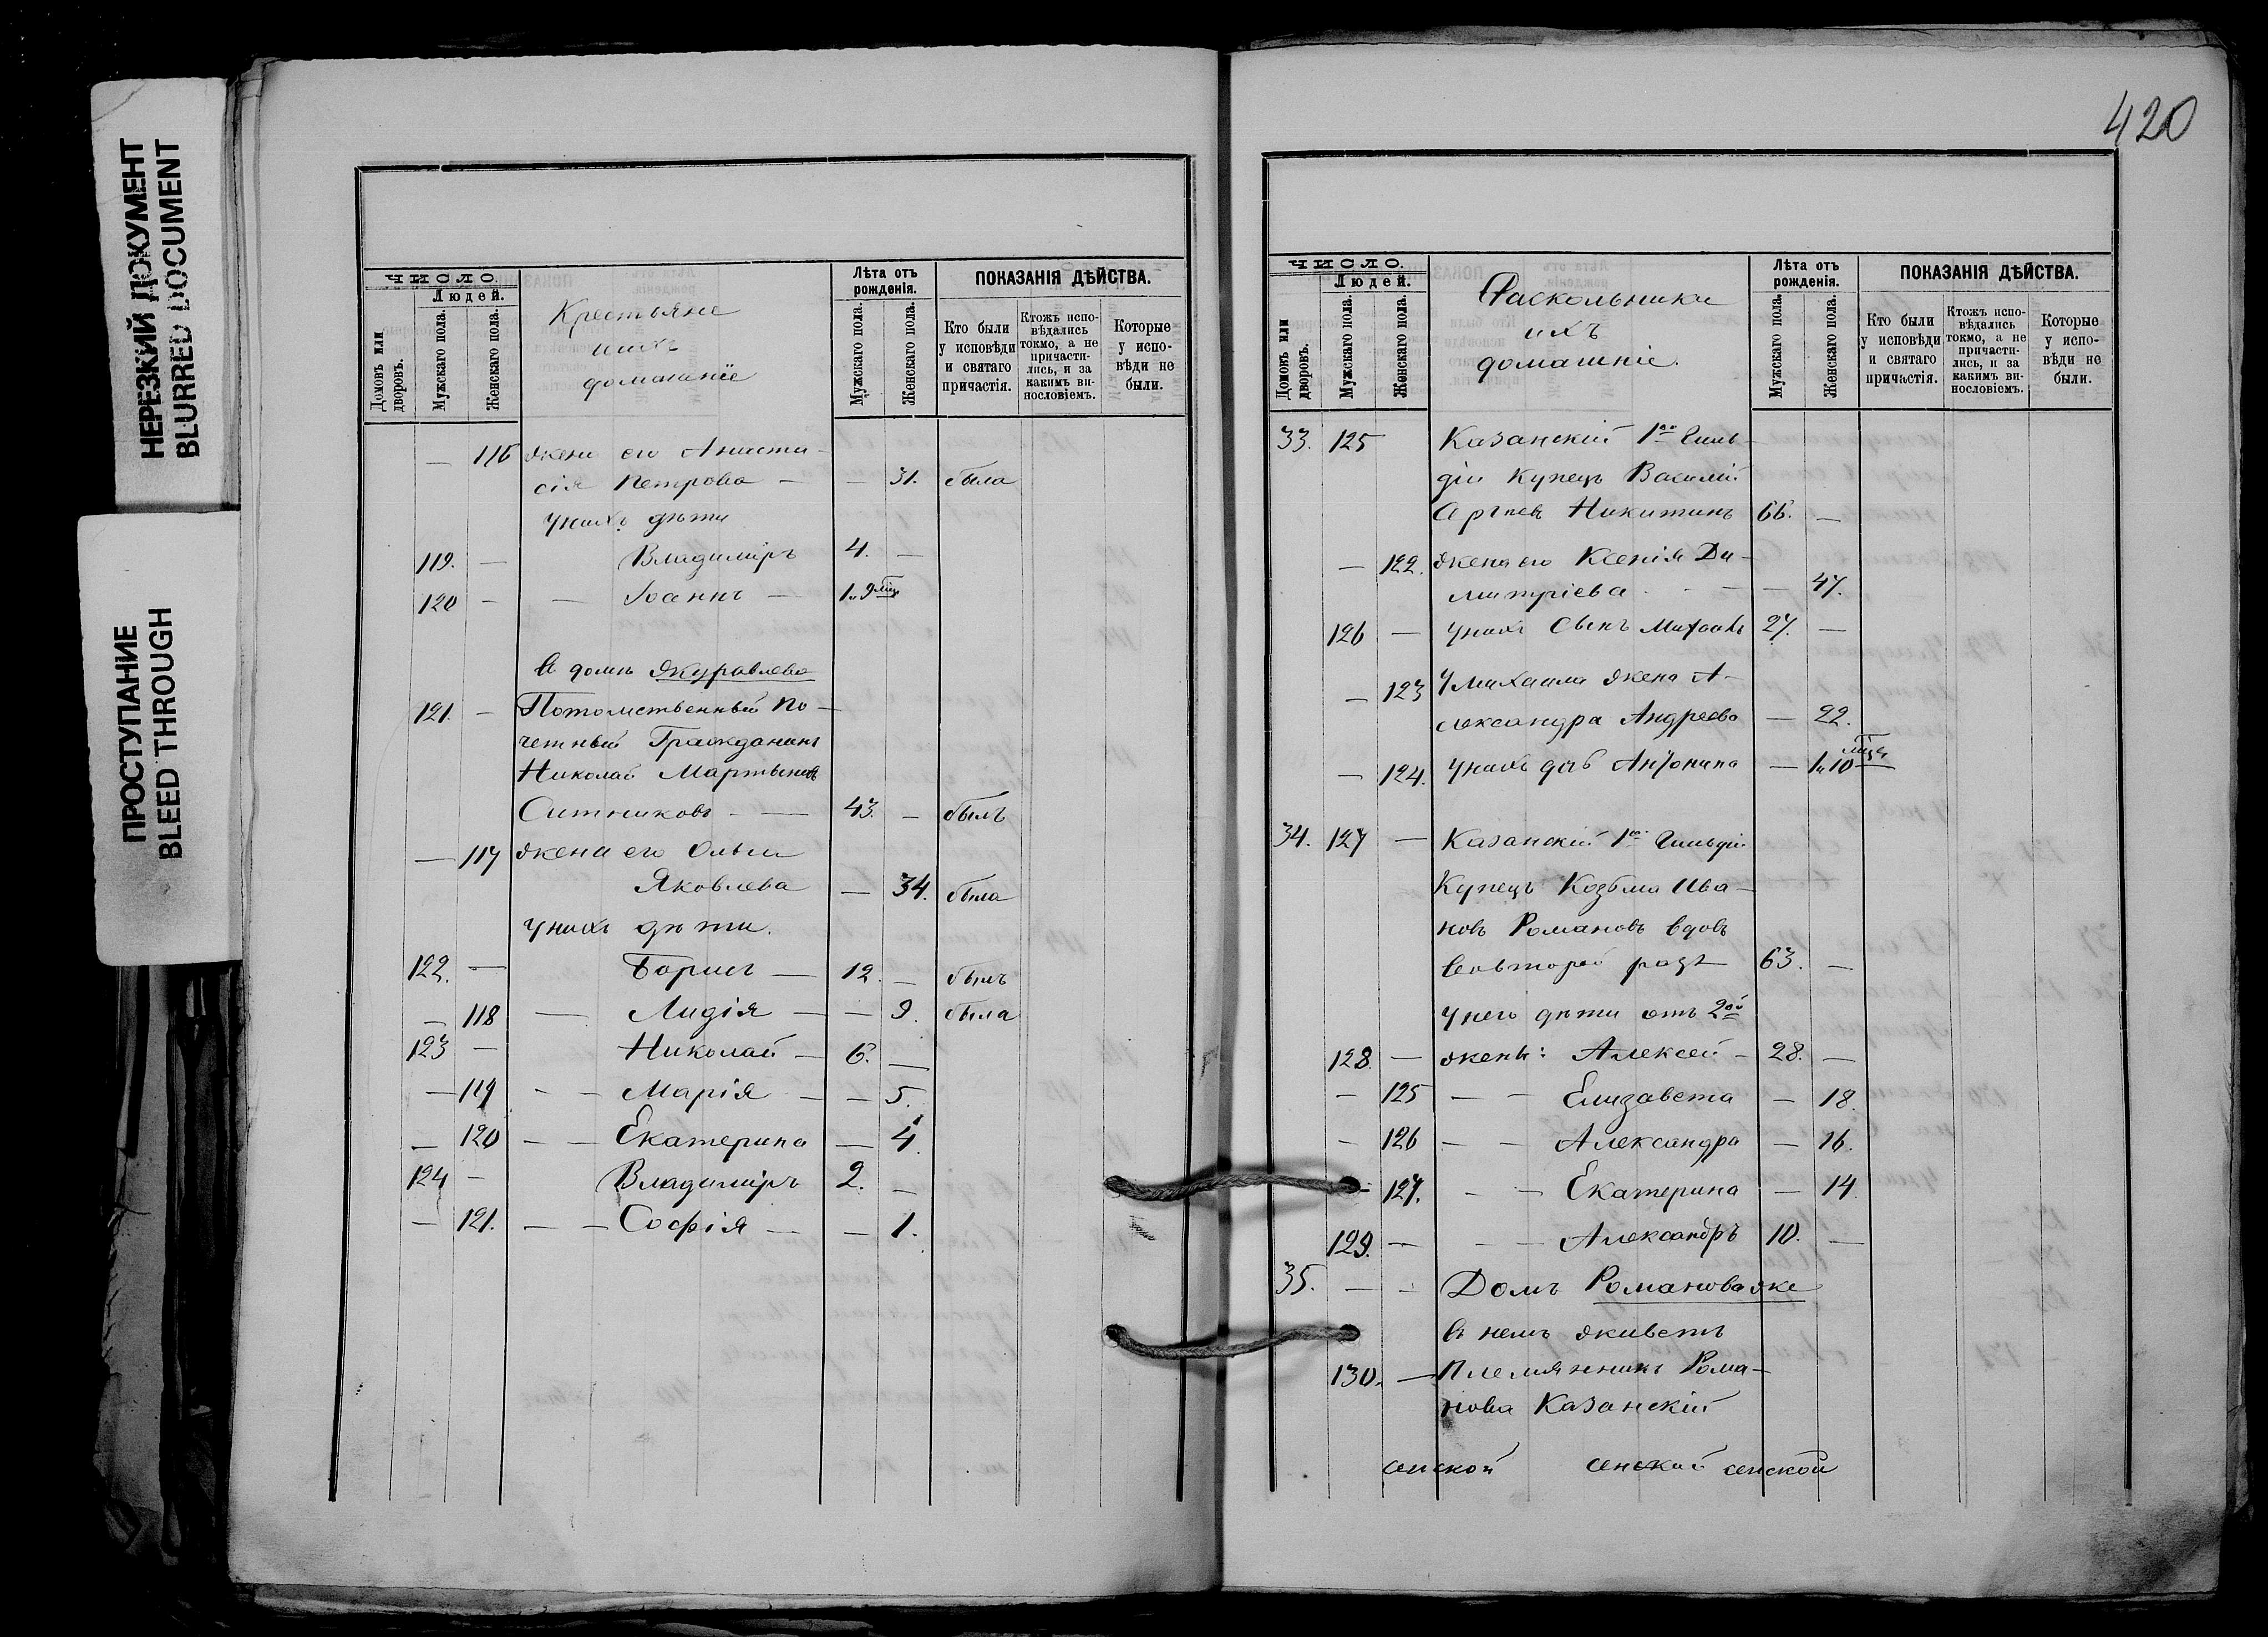 НЕРЕЗКИЙ ДОКУМЕНТ
BLURRED DOCUMENT
ПРОСТУПАНИЕ
BLEED THROUGH
ЧИСЛО.
Людей.
Домовъ или дворовъ.
Мужскаго пола.
Женскаго пола.
Крестьяне
ихъ
домашніе
Лѣта отъ рожденія.
Мужскаго пола.
Женскаго пола.
ПОКАЗАНІЯ ДѢЙСТВА.
Кто были у исповѣди и святаго причастія.
Ктожъ испо-вѣдались токмо, а не причасти-лись, и за какимъ ви-нословіемъ.
Которые у испо-вѣди не были.
— 116 жена его Анаста-
сія Петрова — — 31. была
у нихъ дѣти
119. — Владиміръ 4. —
120 — — Іоаннъ — 1 и 9 мѣц
В домѣ Журавлева
121. — Потомственный По-
четный Гражданинъ
Николай Мартыновъ
Ситниковъ — 43. — былъ
— 117 жена его Ольга
Яковлева — 34. была
у нихъ дѣти.
122. — Борисъ — 12. — былъ
— 118 — Лидія — — 9. была
123 — Николай — 6. —
— 119 — — Марія — — 5.
— 120 — — Екатерина — 4.
124 — Владиміръ 2. —
— 121. — — Софія — — 1.
420
ЧИСЛО.
Людей.
Домовъ или дворовъ.
Мужскаго пола.
Женскаго пола.
Раскольники
ихъ
домашніе.
Лѣта отъ рожденія.
Мужскаго пола.
Женскаго пола.
ПОКАЗАНІЯ ДѢЙСТВА.
Кто были у исповѣди и святаго причастія.
Ктожъ испо-вѣдались токмо, а не причасти-лись, и за какимъ ви-нословіемъ.
Которые у испо-вѣди не были.
33. 125 Казанскій 1ой Гиль-
діи Купецъ Василій
Никитинъ 66. —
— 122. жена его Ксенія Ди-
митріева — — 47.
126 — у нихъ сынъ Михаилъ 27. —
— 123 у Михаила жена А-
лександра Андреева — 22.
— 124. у нихъ дочь Антонина — 1 и 10 мѣц
34. 127 — Казанскій 1ой Гильдіи
Купецъ Козьма Ива-
новъ Романовъ вдовъ
во второй разъ 63. —
у него дѣти отъ 2ой
128. — жены: Алексей — 28. —
— 125 — — Елизавета — 18.
— 126 — — Александра — 16.
— 127. — — Екатерина — 14.
129. — — — Александръ 10. —
35. — — Домъ Романова же
в немъ живетъ
130. — Племянникъ Рома-
нова Казанскій